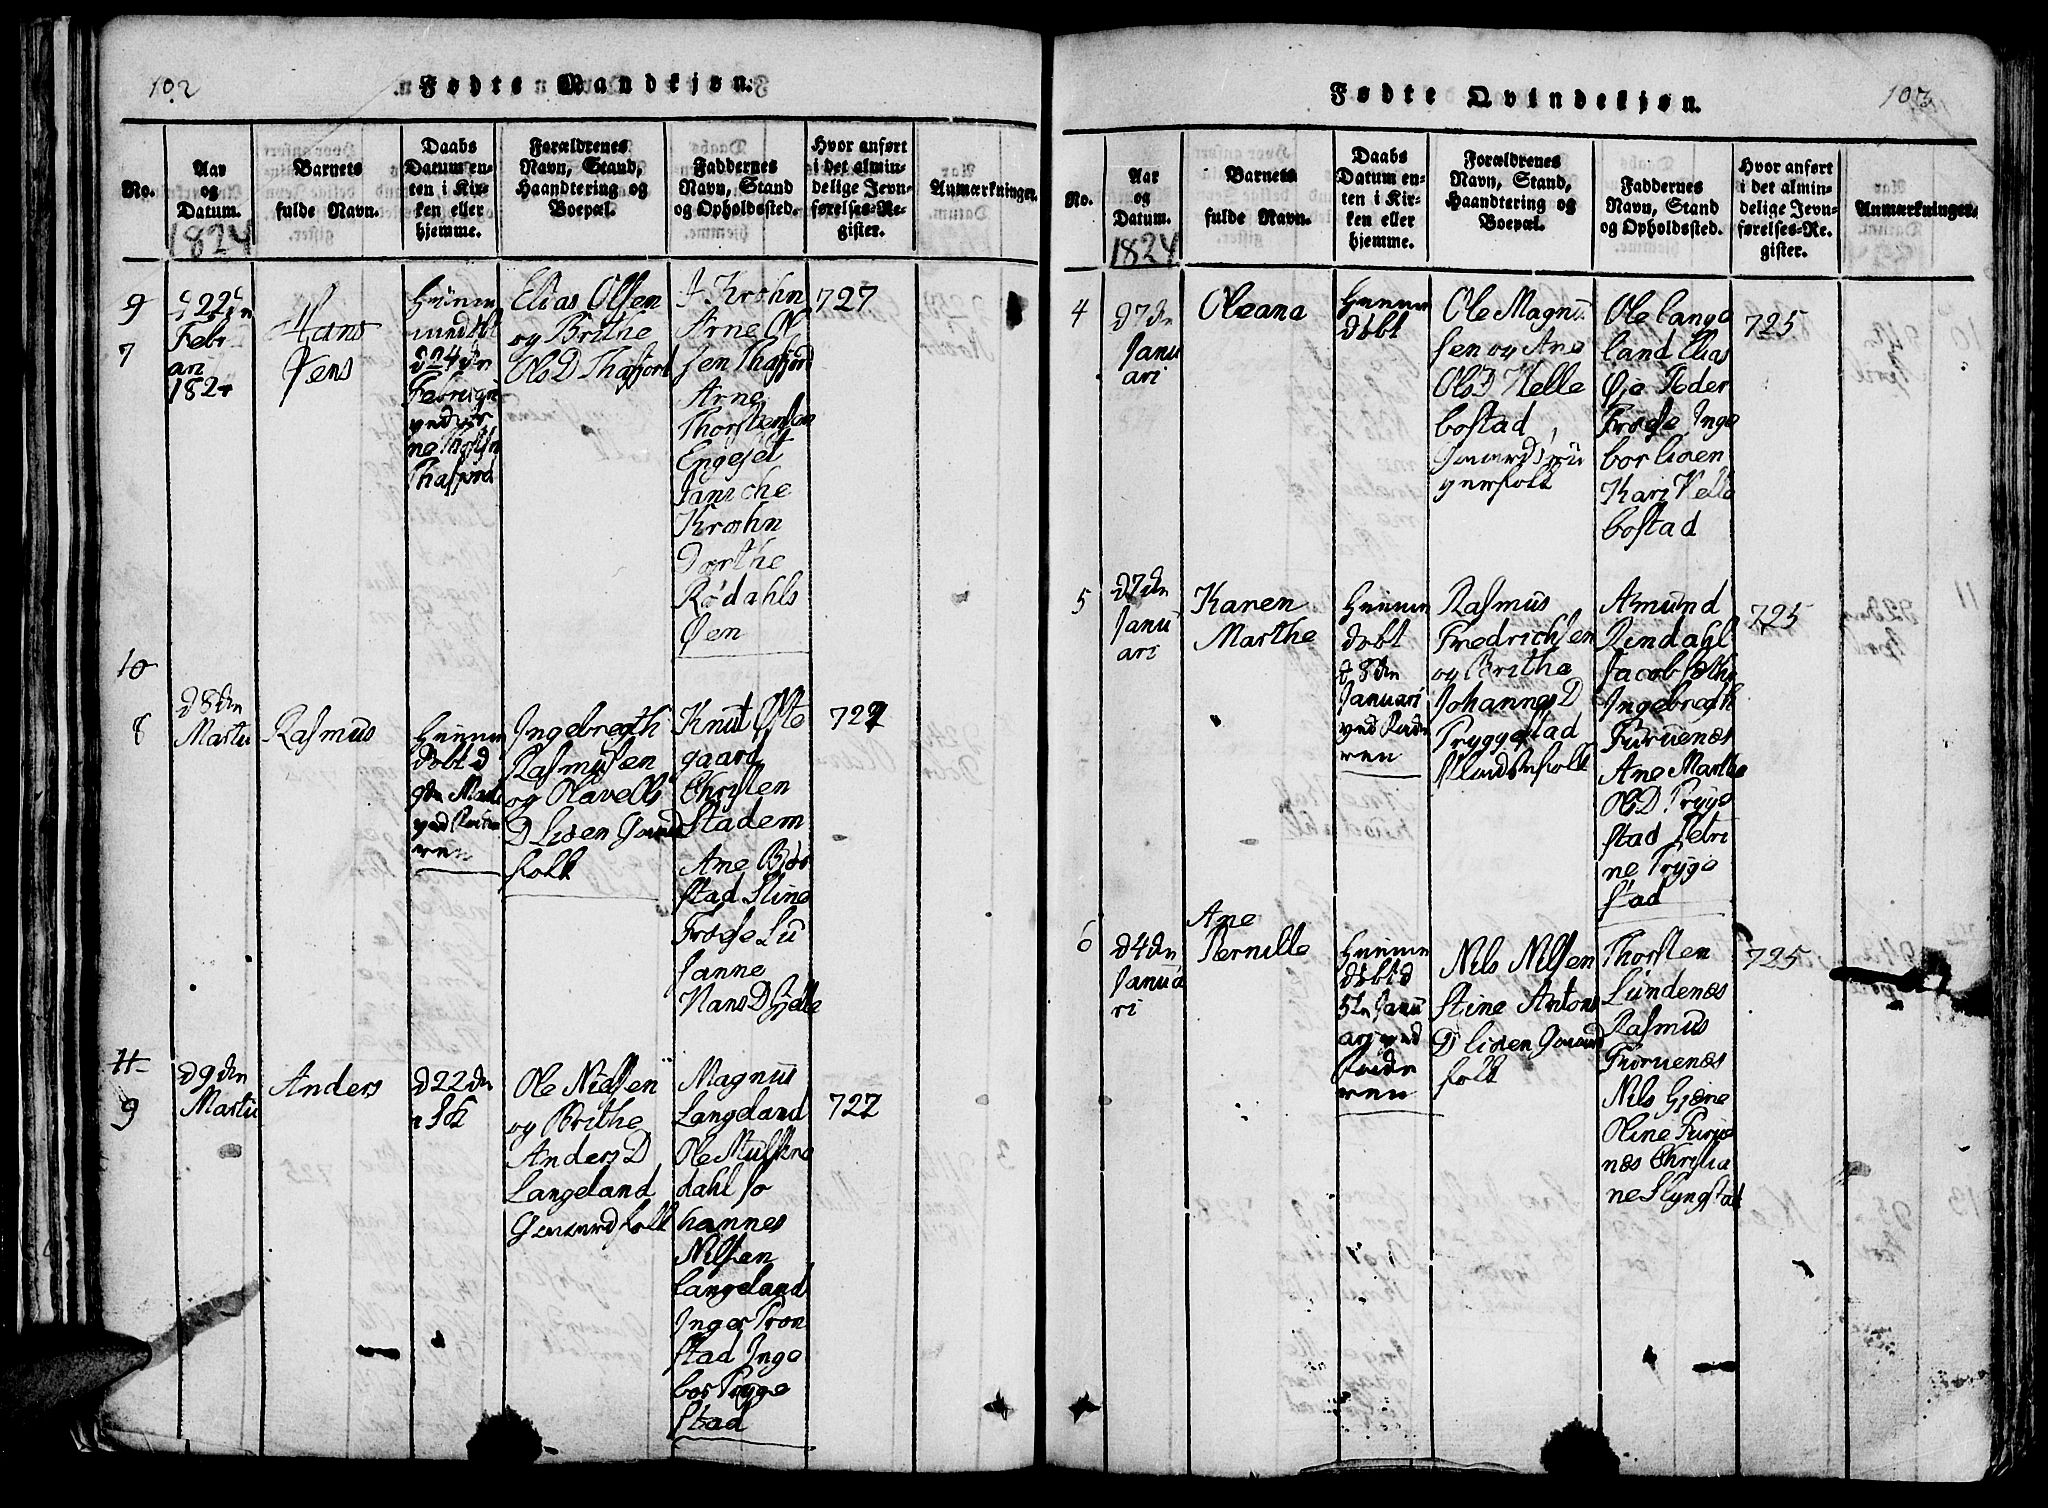 102
Fødte Mandkjøn.
No.
Aar
og
Datum.
1824
Barnets
fulde Navn.
Daabs
Datum en-
ten i Kir-
ken eller
hjemme.
Forældrenes
Navn, Stand,
Haandtering og
Boepæl.
Faddernes
Navn, Stand
og Opholdssted.
Hvor anført
i det almin-
delige Jevn-
førelses-Re-
gister.
Anmærkninger.
9
7
d 22de
Febr
ari
1824
Hans
Jens
Hiem
d 24de
Thafjord
Elias Olsen
og Brithe
Ols D Thafjord
J. Krohn
Arne Ol
sen Thafjord
Arne
Thorstensen
Engeset
Janiche
Krohn
Dorthe
Rødahls
Øen
727
10
8
d 8de
Martii
Rasmus
Hiemme
døbt d
9de Marti
ved Fade
ren
Ingebregth
Rasmusen
og Olave Ols
D Lisen Gaard
folk
Knut Øste
gaard
Christen
Stadem
Ane Bor
stad Stine
Frøse Lu
sanne
Hans D Gjelle
727
11
9
d 9de
Martii
Anders
d 22de
Ole Nielsen
og Brithe
Anders D
Langeland
Gaardfolk
Magnus
Langeland
Ole Mulskre
dahl Jo
hannes
Nilsen
Langeland
Inger Tron
stad Inge
bor Tryge
stad
727
103
Fødte Qvindekjøn.
No.
Aar
og
Datum.
1824
Barnets
fulde Navn.
Daabs
Datum en-
ten i Kir-
ken eller
hjemme.
Forældrenes
Navn, Stand,
Haandtering og
Boepæl.
Faddernes
Navn, Stand
og Opholdssted.
Hvor anført
i det almin-
delige Jevn-
førelses-Re-
gister.
Anmærkninger.
4
d 7de
Janu
ari
Oleana
Hiemme
døbt
Ole Magnu
sen og Ane
Ols D Velle
bostad
Ole Lange
land Elias
Øie Peder
Frøse Inge
bor Lisen
Kari Velle
bostad
725
5
d 7de
Janu
ari
Karen
Marthe
Hiemme
døbt
d 8de
Januari
ved Fade
ren
Rasmus
Fredrichsen
og Brithe
Johannes D
Tryggestad
Amund
Rindahl
Jacob Sæthr
Ingebregth
Furuenæs
Ane Marthe
Ols D Tryge
stad Petri
ne Tryge
stad
725
6
d 4de
Janua
ri
Ane
Pernille
Hiemme
døbt d
5te Janu
ari ved
Fade
ren
Nils Nilsen
Stine Antons
D Lisen Gaard
folk
Thorsten
Lundenæs
Rasmus
Furuenæs
Nils Gjære
Oline Furue
næs Christia
ne Slyngstad
725